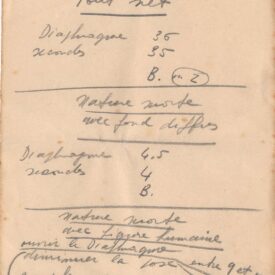 Tout net
Diaphragme 36
secondes 35
B. ou Z
Nature morte
avec fond diffus
Diaphragme 4.5
secondes 4
B.
Nature morte
avec figure humaine
ouvrir le Diaphragme
diminuer la pose entre 9 et